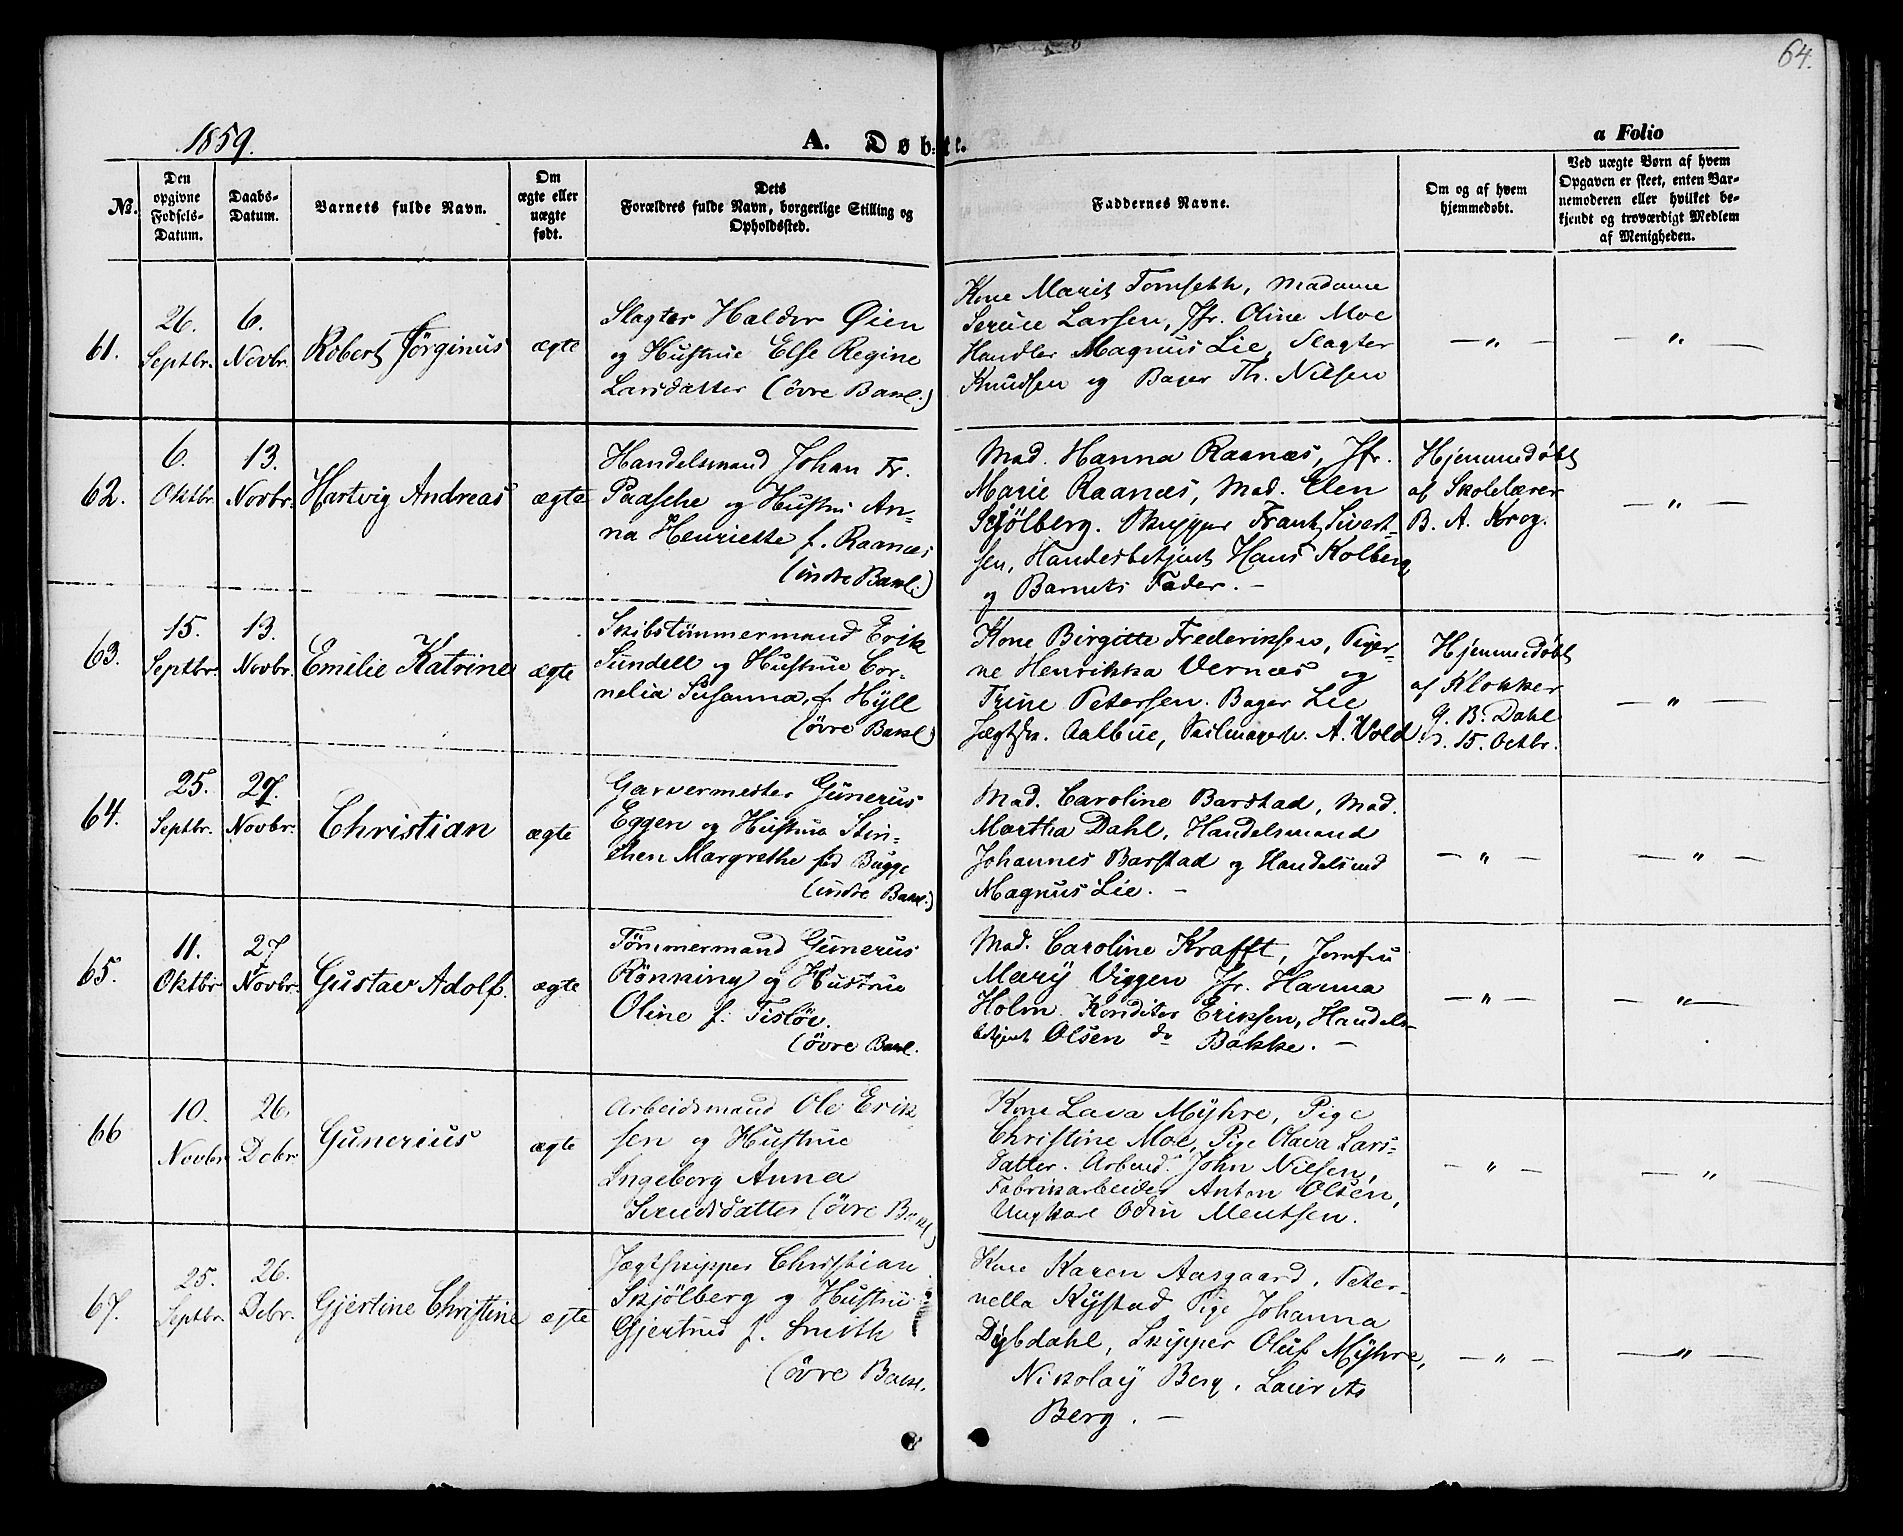 64.
1859.
A. Døbte.
a Folio
No.
Den opgivne Fødsels-Datum.
Daabs-Datum.
Barnets fulde Navn.
Om ægte eller uægte født.
Dets Forældres fulde Navn, borgerlige Stilling og Opholdssted.
Faddernes Navne.
Om og af hvem hjemmedøbt.
Ved uægte Børn af hvem Opgaven er skeet, enten Barnemoderen eller hvilket bekjendt og troværdigt Medlem af Menigheden.
61.
26. Septbr.
6. Novbr.
Robert Jörginus
ægte
Slagter Haldor Øien
og Hustrue Else Regine
Larsdatter (övre Bakl.)
Kone Marit Tomseth, Madame
Serine Larsen, Jfr. Oline Moe
Handler Magnus Lie, Slagter
Knudsen og Bager Th. Nilsen
— " —
— " —
62.
6. Oktbr.
13. Novbr.
Hartvig Andreas
ægte
Handelsmand Johan Fr.
Paasche og Hustru An-
na Henriette f. Raanæs
(indre Bakl.)
Mad. Hanna Raanæs, Jfr.
Marie Raanæs, Mad. Elen
Skjölberg. Skipper Frants Sivert-
sen, Handesbetjent Hans Kolberg
og Barnets Fader. —
Hjemmedöbt
af Skolelærer
B. A. Krog.
— " —
63.
15. Septbr.
13. Novbr.
Emilie Katrine
ægte
Skibstömmermand Erik
Sundell og Hustrue Cor-
nelia Susanna, f. Hÿll
(övre Bakl.)
Kone Birgitte Frederiksen, Piger-
ne Henrikka Vernæs og
Trine Petersen. Bager Lie
Jægtsk. Aalbue, Seilmagersv. A. Vold
Hjemmedöbt
af Klokker
B. Dahl
15. Octbr.
— " —
64.
25. Septbr.
27. Novbr.
Christian
ægte
Garvermester Gunerus
Eggen og Hustrue Stin-
chen Margrethe fød Bugge
(indre Bakl.)
Mad. Caroline Barstad, Mad.
Martha Dahl, Handelsmand
Johannes Barstad og Handelsmd
Magnus Lie. —
— " —
— " —
65.
11. Oktbr.
27. Novbr.
Gustav Adolf.
ægte
Tömmermand Gunerus
Rönning og Hustrue
Oline f. Tislöe.
(övre Bakl.
Mad. Caroline Krafft, Jomfru
Marÿ Viggen Jfr. Hanna
Holm. Konditor Eriksen, Handels-
betjent Olsen do Bakke. —
— " —
— " —
66
10. Novbr.
26. Debr.
Gunerius
ægte
Arbeidsmand Ole Erik-
sen og Hustrue
Ingeborg Anna
Svendsdatter (övre Bakl.)
Kone Lava Mÿhre, Pige
Christine Moe, Pige Olava Lars-
datter. Arbmd. John Nilsen,
Fabrikarbeider Anton Olsen,
Ungkarl Odin Mentsen.
— " —
— " —
67.
25. Septbr.
26. Debr.
Gjertine Christine
ægte
Jægtskipper Christian
Skjölberg og Hustrue
Gjertrud f. Smith
(övre Bakl.
Kone Karen Aasgaard, Peter-
nella Rÿstad Pige Johanna
Dybdahl, Skipper Oluf Mÿhre,
Nikolaÿ Berg, Laurits
Berg. —
— " —
— " —